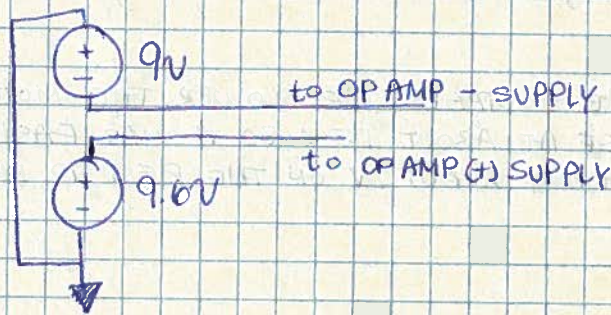 +
-
9V
to OP AMP - SUPPLY
to OP AMP (+) SUPPLY
+
-
9.6V